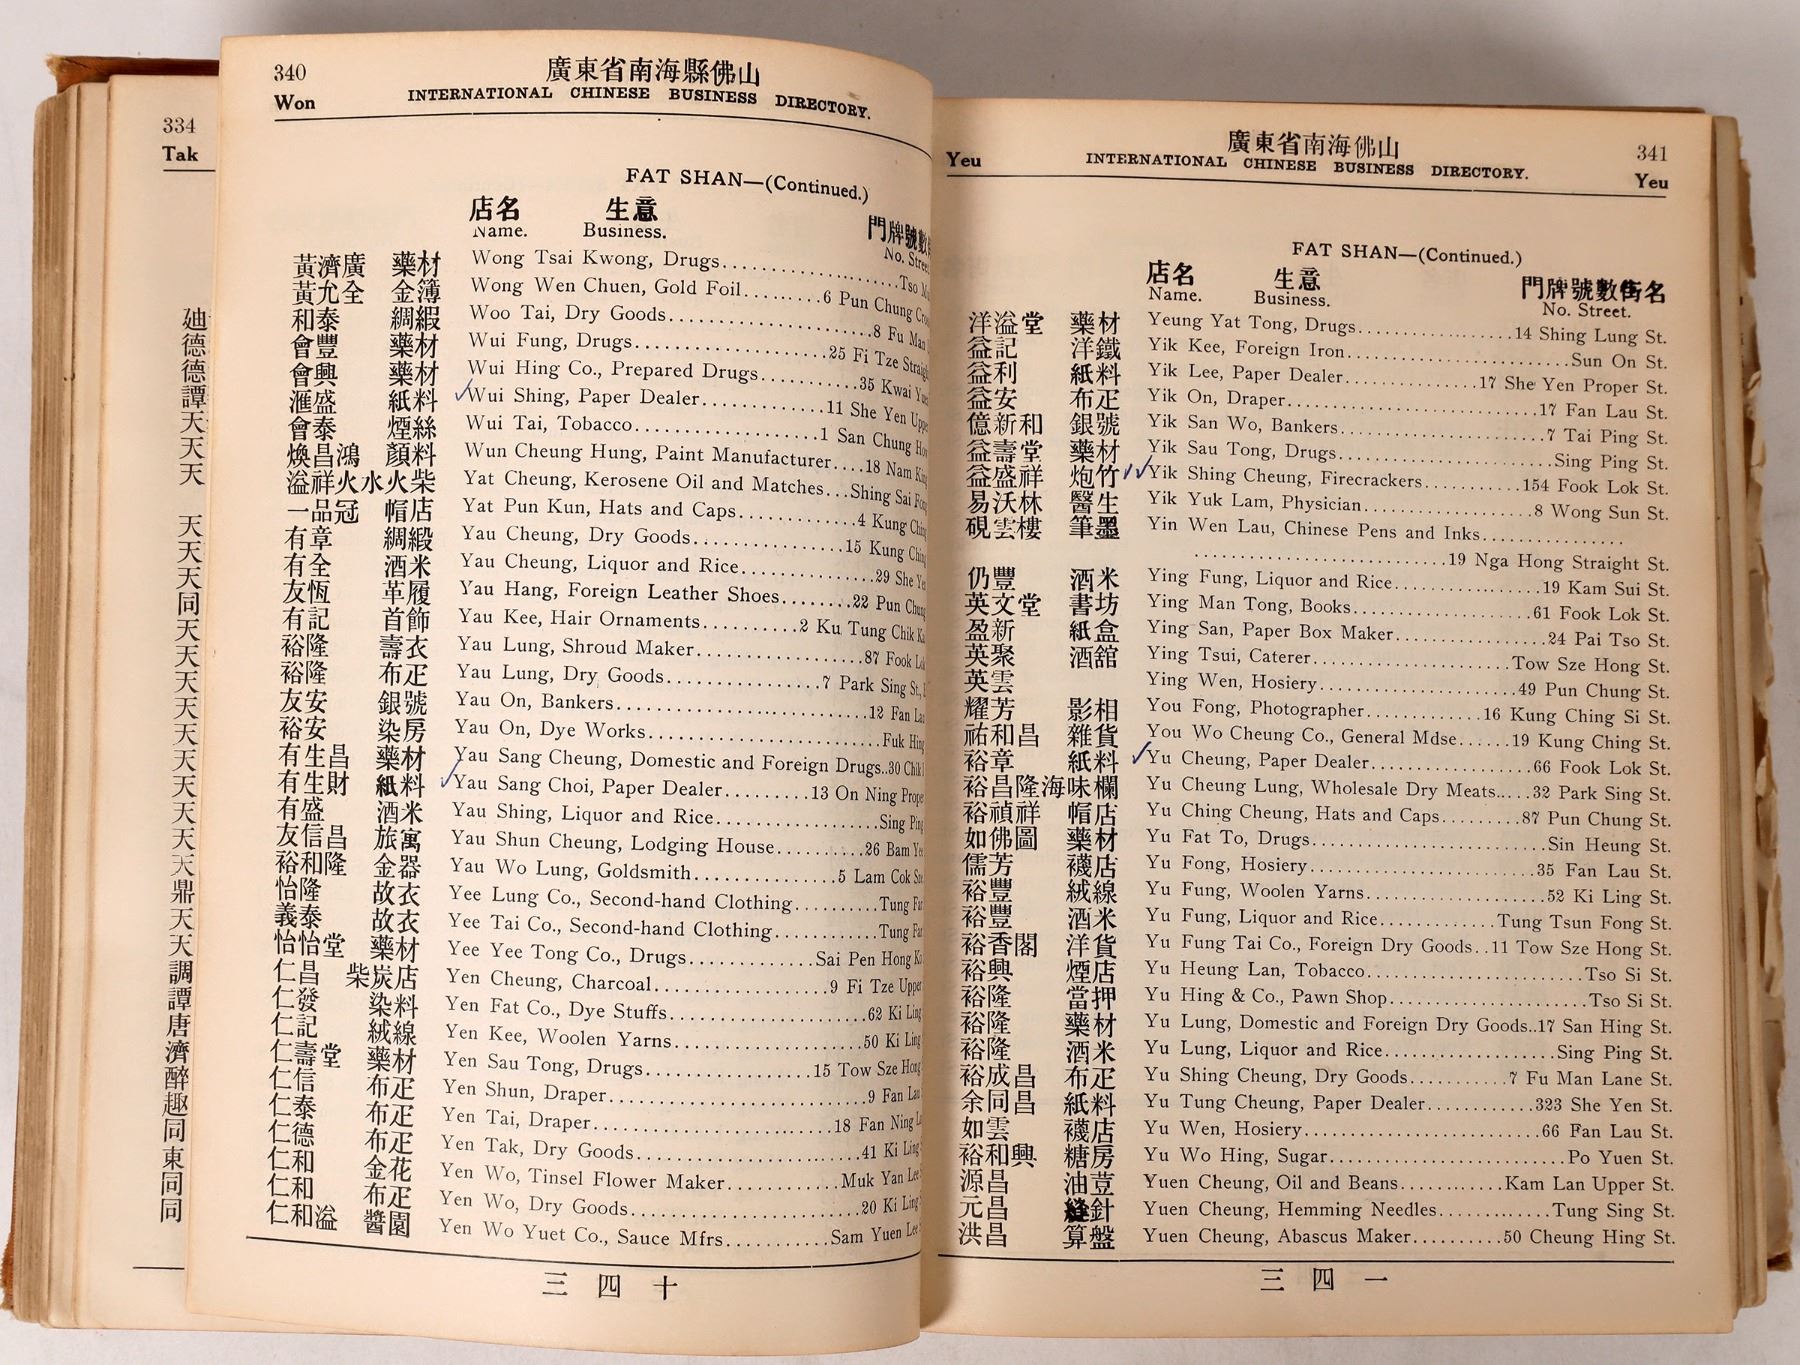 334
Tak
廸
德
德
譚
天
天
天
天
天
天
同
天
天
天
天
天
天
天
天
天
天
鼎
天
天
調
譚
唐
濟
醉
趣
同
東
同
同
340
廣東省南海縣佛山
Won
INTERNATIONAL CHINESE BUSINESS DIRECTORY.
FAT SHAN—(Continued.)
店名 生意 門牌號數
Name. Business. No. Street
黃濟廣 藥材 Wong Tsai Kwong, Drugs.......... Tso
黃允全 金簿 Wong Wen Chuen, Gold Foil..........6 Pun Chung
和泰 綢緞 Woo Tai, Dry Goods..........8 Fu Man
會豐 藥材 Wui Fung, Drugs..........25 Fi Tze Straight
會興 藥材 Wui Hing Co., Prepared Drugs..........35 Kwai
滙盛 紙料 Wui Shing, Paper Dealer..........11 She Yen Upper
會泰 煙絲 Wui Tai, Tobacco..........1 San Chung
煥昌鴻 顏料 Wun Cheung Hung, Paint Manufacturer....18 Nam
溢祥火水火柴 Yat Cheung, Kerosene Oil and Matches...Shing Sai
一品冠 帽店 Yat Pun Kun, Hats and Caps..........4 Kung Ching
有章 綢緞 Yau Cheung, Dry Goods..........15 Kung Ching
有全 酒米 Yau Cheung, Liquor and Rice..........29 She Yen
友恆 革履 Yau Hang, Foreign Leather Shoes........22 Pun Chung
有記 首飾 Yau Kee, Hair Ornaments..........2 Ku Tung Chik
裕隆 壽衣 Yau Lung, Shroud Maker..........87 Fook Lok
裕隆 布疋 Yau Lung, Dry Goods..........7 Park Sing St.,
友安 銀號 Yau On, Bankers..........12 Fan Lau
裕安 染房 Yau On, Dye Works..........Fuk Hing
有生昌 藥材 Yau Sang Cheung, Domestic and Foreign Drugs..30 Chik
有生財 紙料 Yau Sang Choi, Paper Dealer.........13 On Ning Proper
有盛 酒米 Yau Shing, Liquor and Rice..........Sing Ping
友信昌 旅寓 Yau Shun Cheung, Lodging House.........26 Bam Yee
裕和隆 金器 Yau Wo Lung, Goldsmith..........5 Lam Cok
怡隆 故衣 Yee Lung Co., Second-hand Clothing..........Tung Far
義泰 故衣 Yee Tai Co., Second-hand Clothing..........Tung Far
怡怡堂 藥材 Yee Yee Tong Co., Drugs..........Sai Pen Hong
仁昌 柴炭店 Yen Cheung, Charcoal..........9 Fi Tze Upper
仁發 染料 Yen Fat Co., Dye Stuffs..........62 Ki Ling
仁記 絨線 Yen Kee, Woolen Yarns..........50 Ki Ling
仁壽堂 藥材 Yen Sau Tong, Drugs..........15 Tow Sze Hong
仁信 布疋 Yen Shun, Draper..........9 Fan Lau
仁泰 布疋 Yen Tai, Draper..........18 Fan Ning
仁德 布疋 Yen Tak, Dry Goods..........41 Ki Ling
仁和 金花 Yen Wo, Tinsel Flower Maker..........Muk Yan Lee
仁和 布疋 Yen Wo, Dry Goods..........20 Ki Ling
仁和溢 醬園 Yen Wo Yuet Co., Sauce Mfrs..........Sam Yuen Lee
三四十
Yeu
廣東省南海佛山
341
INTERNATIONAL CHINESE BUSINESS DIRECTORY.
Yeu
FAT SHAN—(Continued.)
店名 生意 門牌號數街名
Name. Business. No. Street.
洋溢堂 藥材 Yeung Yat Tong, Drugs..........14 Shing Lung St.
益記 洋鐵 Yik Kee, Foreign Iron..........Sun On St.
益利 紙料 Yik Lee, Paper Dealer..........17 She Yen Proper St.
益安 布疋 Yik On, Draper..........17 Fan Lau St.
億新和 銀號 Yik San Wo, Bankers..........7 Tai Ping St.
益壽堂 藥材 Yik Sau Tong, Drugs..........Sing Ping St.
益盛祥 炮竹 Yik Shing Cheung, Firecrackers..........154 Fook Lok St.
易沃林 醫生 Yik Yuk Lam, Physician..........8 Wong Sun St.
硯雲樓 筆墨 Yin Wen Lau, Chinese Pens and Inks..........
..........19 Nga Hong Straight St.
仍豐 酒米 Ying Fung, Liquor and Rice..........19 Kam Sui St.
英文堂 書坊 Ying Man Tong, Books..........61 Fook Lok St.
盈新 紙盒 Ying San, Paper Box Maker..........24 Pai Tso St.
英聚 酒舘 Ying Tsui, Caterer..........Tow Sze Hong St.
英雲 Ying Wen, Hosiery..........49 Pun Chung St.
耀芳 影相 You Fong, Photographer..........16 Kung Ching Si St.
祐和昌 雜貨 You Wo Cheung Co., General Mdse......19 Kung Ching St.
裕章 紙料 Yu Cheung, Paper Dealer..........66 Fook Lok St.
裕昌隆海味欄 Yu Cheung Lung, Wholesale Dry Meats.....32 Park Sing St.
裕禎祥 帽店 Yu Ching Cheung, Hats and Caps.........87 Pun Chung St.
如佛圖 藥材 Yu Fat To, Drugs..........Sin Heung St.
儒芳 襪店 Yu Fong, Hosiery..........35 Fan Lau St.
裕豐 絨線 Yu Fung, Woolen Yarns..........52 Ki Ling St.
裕豐 酒米 Yu Fung, Liquor and Rice..........Tung Tsun Fong St.
裕香閣 洋貨 Yu Fung Tai Co., Foreign Dry Goods..11 Tow Sze Hong St.
裕興 煙店 Yu Heung Lan, Tobacco..........Tso Si St.
裕隆 當押 Yu Hing & Co., Pawn Shop..........Tso Si St.
裕隆 藥材 Yu Lung, Domestic and Foreign Dry Goods..17 San Hing St.
裕隆 酒米 Yu Lung, Liquor and Rice..........Sing Ping St.
裕成昌 布疋 Yu Shing Cheung, Dry Goods..........7 Fu Man Lane St.
余同昌 紙料 Yu Tung Cheung, Paper Dealer..........323 She Yen St.
如雲 襪店 Yu Wen, Hosiery..........66 Fan Lau St.
裕和興 糖房 Yu Wo Hing, Sugar..........Po Yuen St.
源昌 油荳 Yuen Cheung, Oil and Beans..........Kam Lan Upper St.
元昌 縫針 Yuen Cheung, Hemming Needles..........Tung Sing St.
洪昌 算盤 Yuen Cheung, Abascus Maker..........50 Cheung Hing St.
三四一